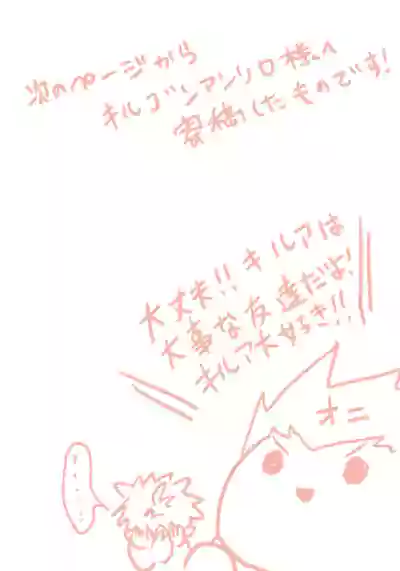 次のページから
キルゴンアンソロ様へ
寄稿したものです!
大丈夫!!キルアは
大事な友達だよ!
キルア大好き!!
オニ